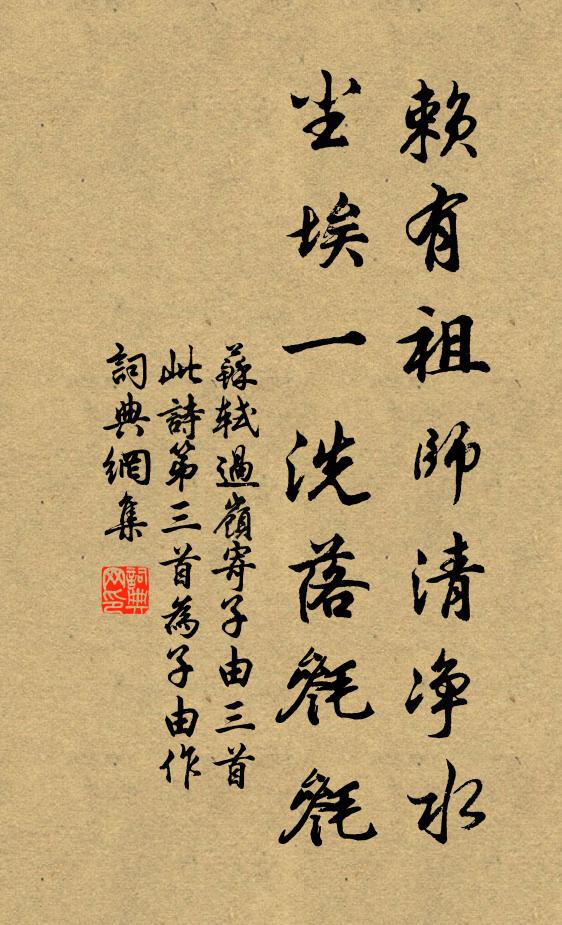 赖有祖師清净水
尘埃一洗落毿毿
蘇軾過嶺寄子由三首
此詩第三首為子由作
詞典網集
詞典网印